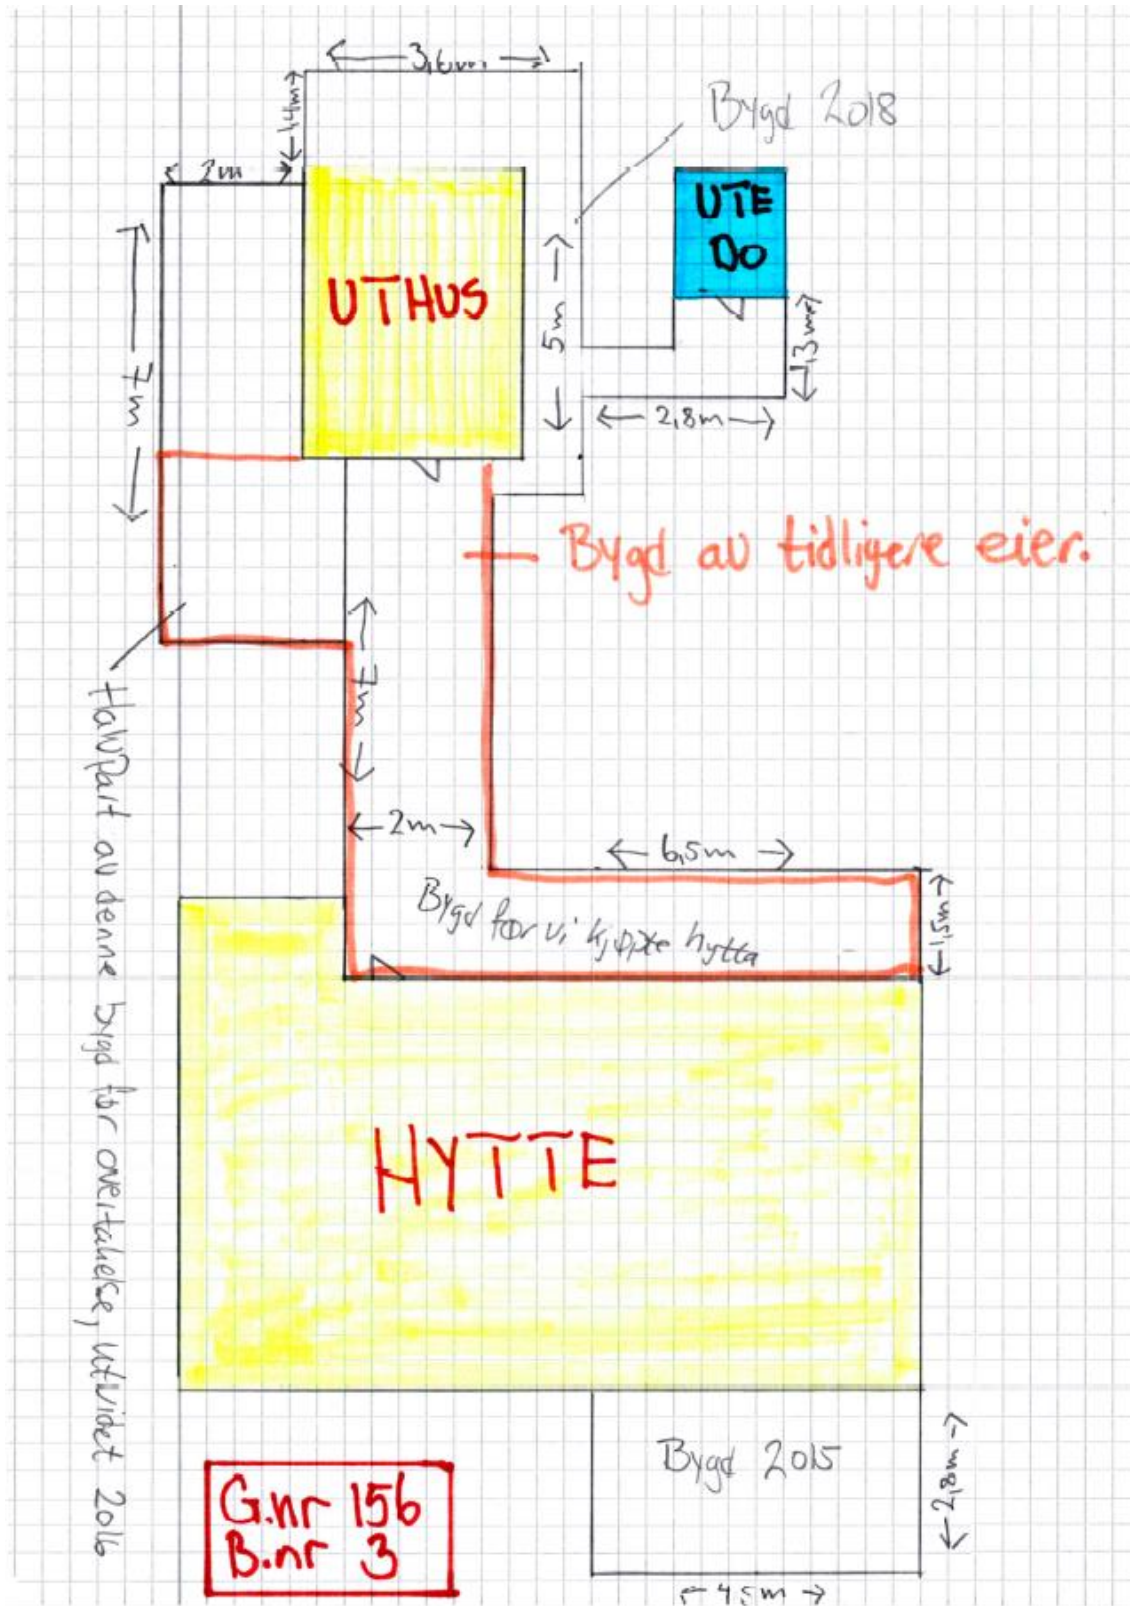 3,6m
1,4m
Bygd 2018
2m
UTE
DO
UTHUS
7m
5m
1,3m
2,8m
Bygd av tidligere eier.
7m
2m
6,5m
Bygd før vi kjøpte hytta
1,5m
Halvpart av denne bygd før overtakelse, utvidet 2016
HYTTE
Bygd 2015
2,8m
G.nr 156
B.nr 3
4,5m